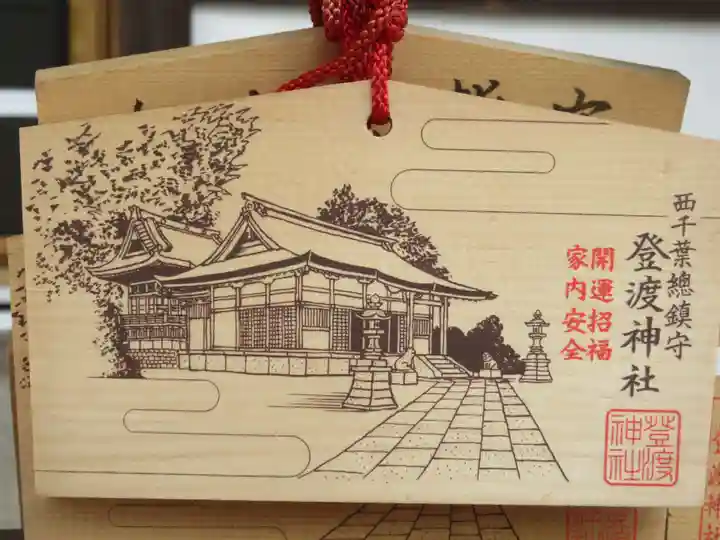 西千葉總鎮守
登渡神社
開運招福
家内安全
登渡
神社